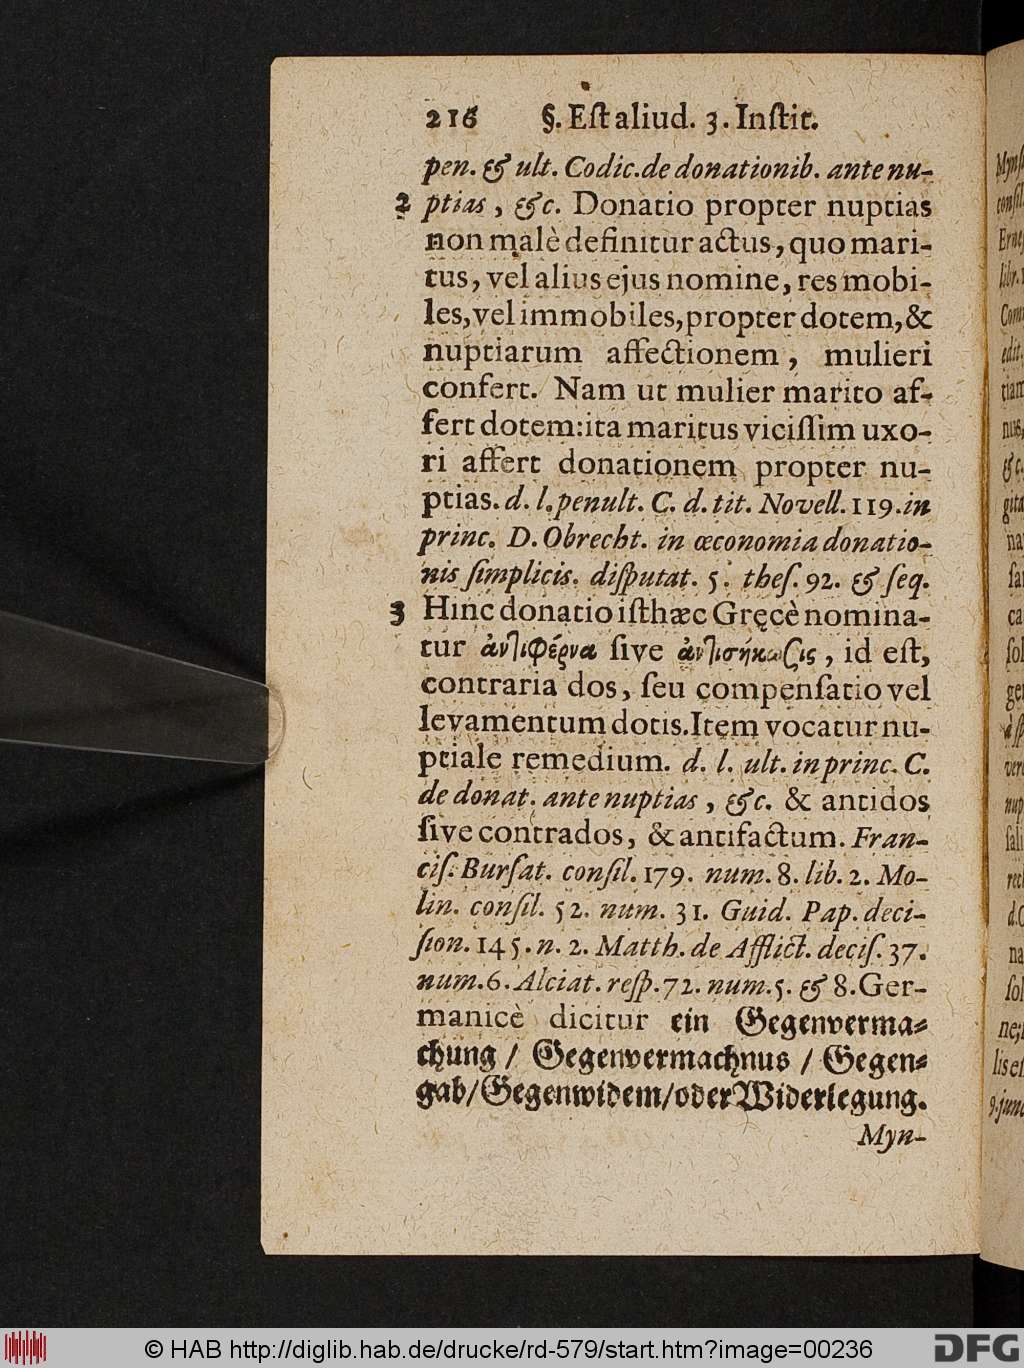 216 §. Eſt aliud. 3. Inſtit.
pen. & ult. Codic. de donationib. ante nu-
2 ptias, &c. Donatio propter nuptias
non malè definitur actus, quo mari-
tus, vel alius ejus nomine, res mobi-
les, vel immobiles, propter dotem, &
nuptiarum affectionem, mulieri
confert. Nam ut mulier marito af-
fert dotem: ita maritus viciſſim uxo-
ri affert donationem propter nu-
ptias. d. l. penult. C. d. tit. Novell. 119. in
princ. D. Obrecht. in œconomia donatio-
nis ſimplicis. diſputat. 5. theſ. 92. & ſeq.
3 Hinc donatio iſthæc Gręcè nomina-
tur ἀντιφέρνα ſive ἀντισήκωζις, id eſt,
contraria dos, ſeu compenſatio vel
levamentum dotis. Item vocatur nu-
ptiale remedium. d. l. ult. in princ. C.
de donat. ante nuptias, &c. & antidos
ſive contrados, & antifactum. Fran-
ciſ. Burſat. conſil. 179. num. 8. lib. 2. Mo-
lin. conſil. 52. num. 31. Guid. Pap. deci-
ſion. 145. n. 2. Matth. de Afflict. deciſ. 37.
num. 6. Alciat. reſp. 72. num. 5. & 8. Ger-
manicè dicitur ein Gegenverma-
chung / Gegenvermachnus / Gegen-
gab / Gegenwidem / oder Widerlegung.
Myn-
© HAB http://diglib.hab.de/drucke/rd-579/start.htm?image=00236
DFG